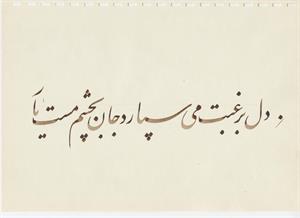 دل برغبت می سپارد جان بچشم مست یار